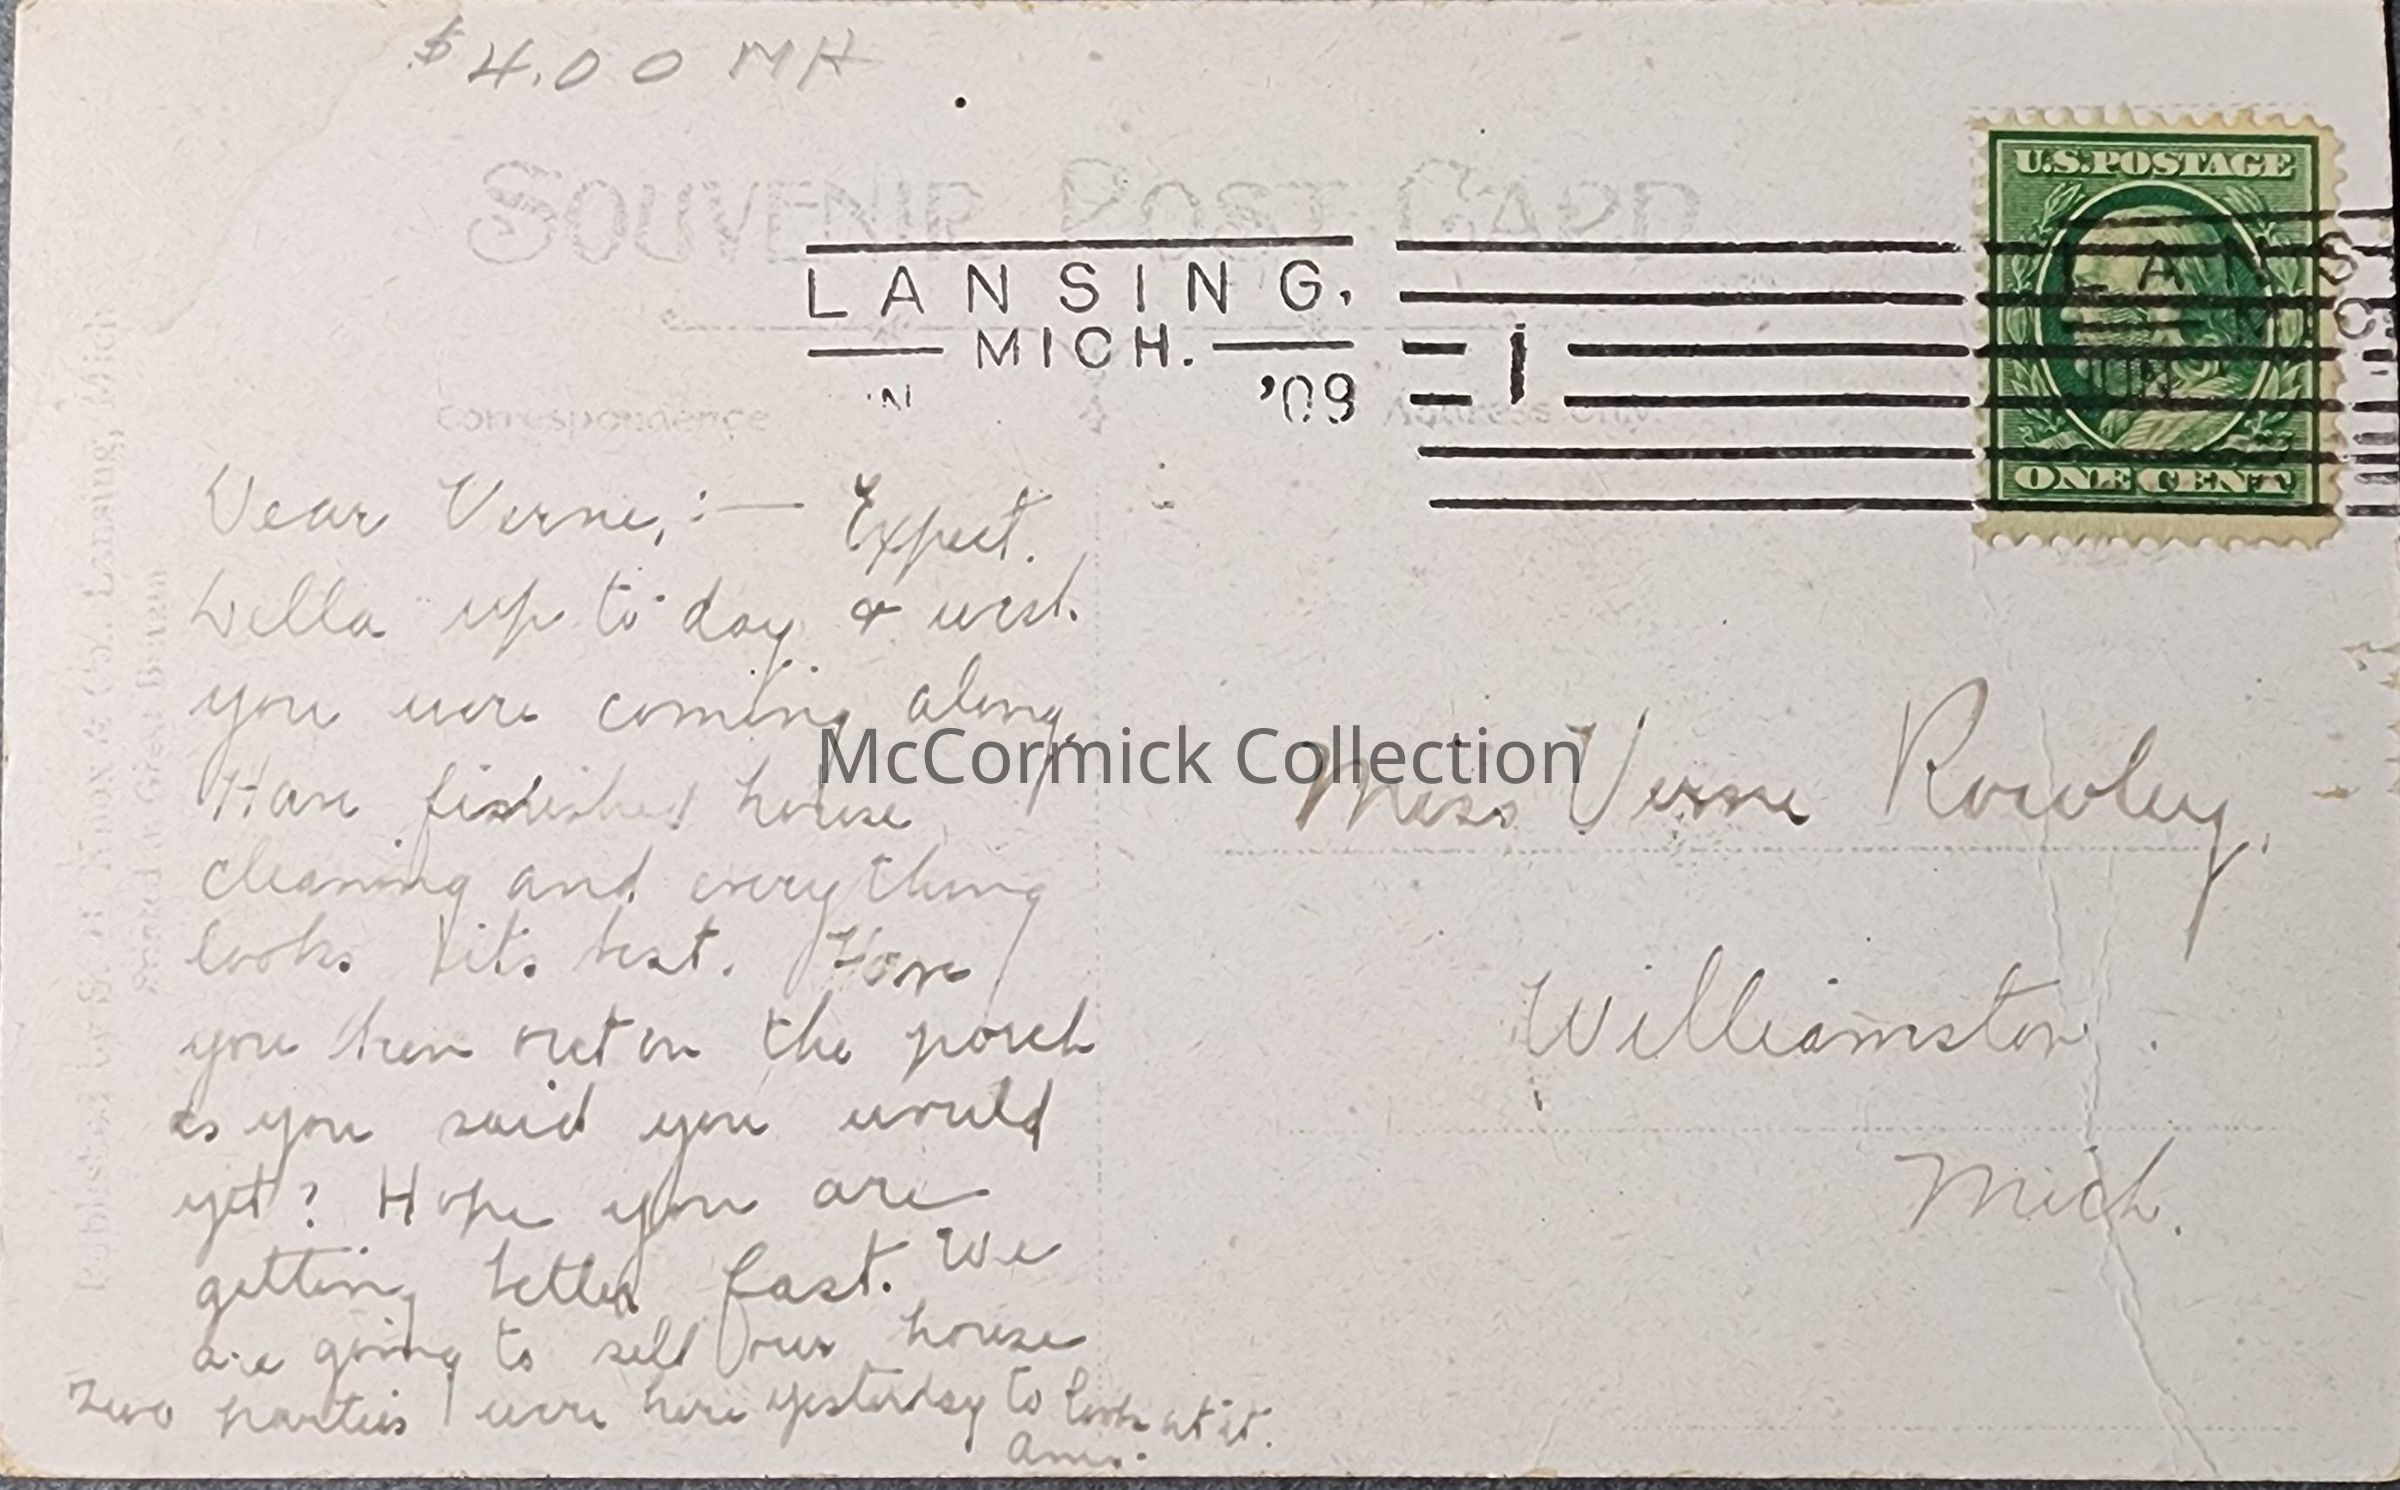 $4.00 MH
SOUVENIR POST CARD
LANSING.
MICH.
'09
1
U.S. POSTAGE
LANS
MIC
JUN
ONE CENT
Correspondence
Address Only
Published by Co., Lansing, Mich.
Dear Verne,:— Expect.
Della up to day & wish
you were coming along.
Have finished house
cleaning and everything
looks its best. Have
you been out on the porch
as you said you would
yet? Hope you are
getting better fast. We
are going to sell our house
Two parties were here yesterday to look at it.
McCormick Collection
Miss Verne Rowley,
Williamston.
Mich.